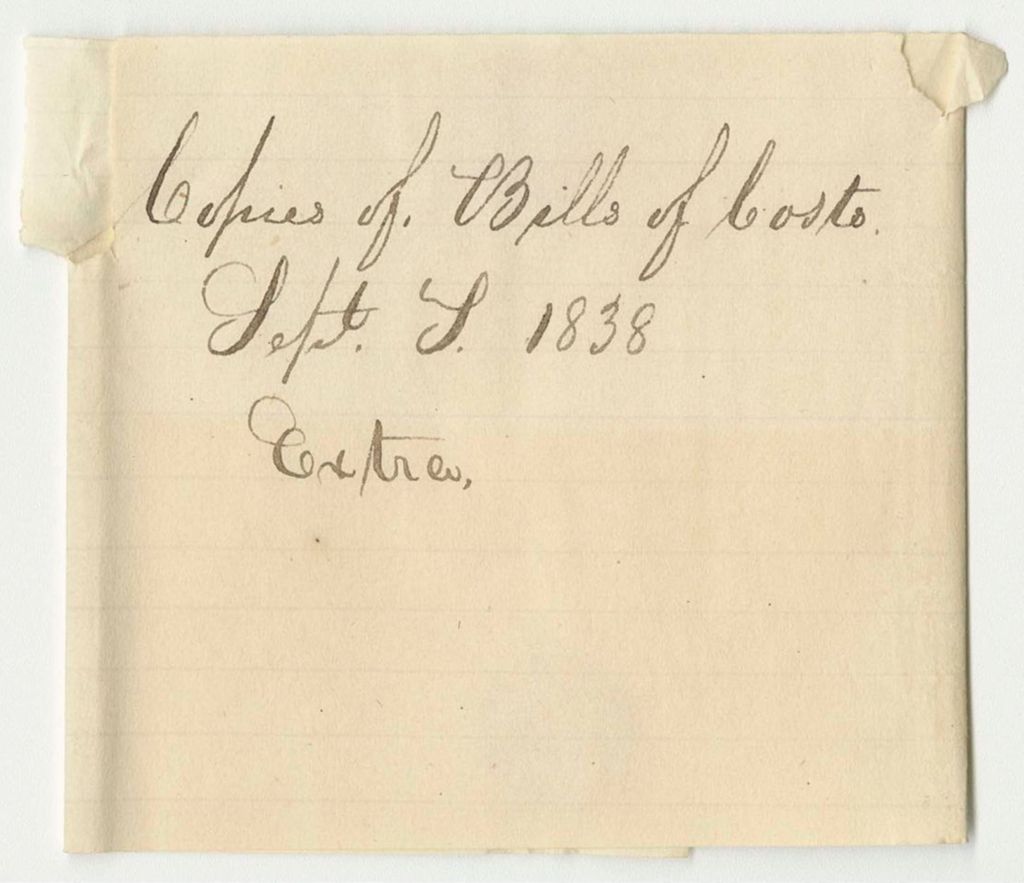 Copies of. Bills of Costs.
Sept. T. 1838
Extra,